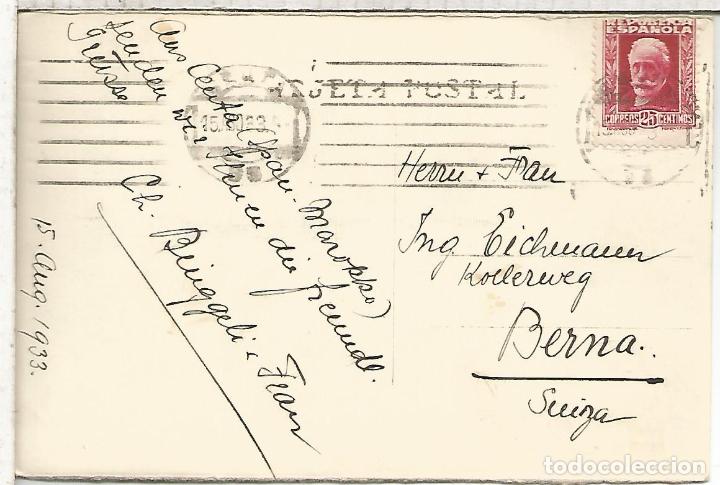 Aus Ceuta (Span. Marokko)
senden wir Ihnen die freundl.
Grüsse
Ch. Binggeli + Frau
15. Aug. 1933.
TARJETA POSTAL
REPUBLICA
ESPAÑOLA
CORREOS 25 CENTIMOS
Herrn + Frau
Ing Eichmann
Kollerweg
Berna.
Suiza
todocoleccion